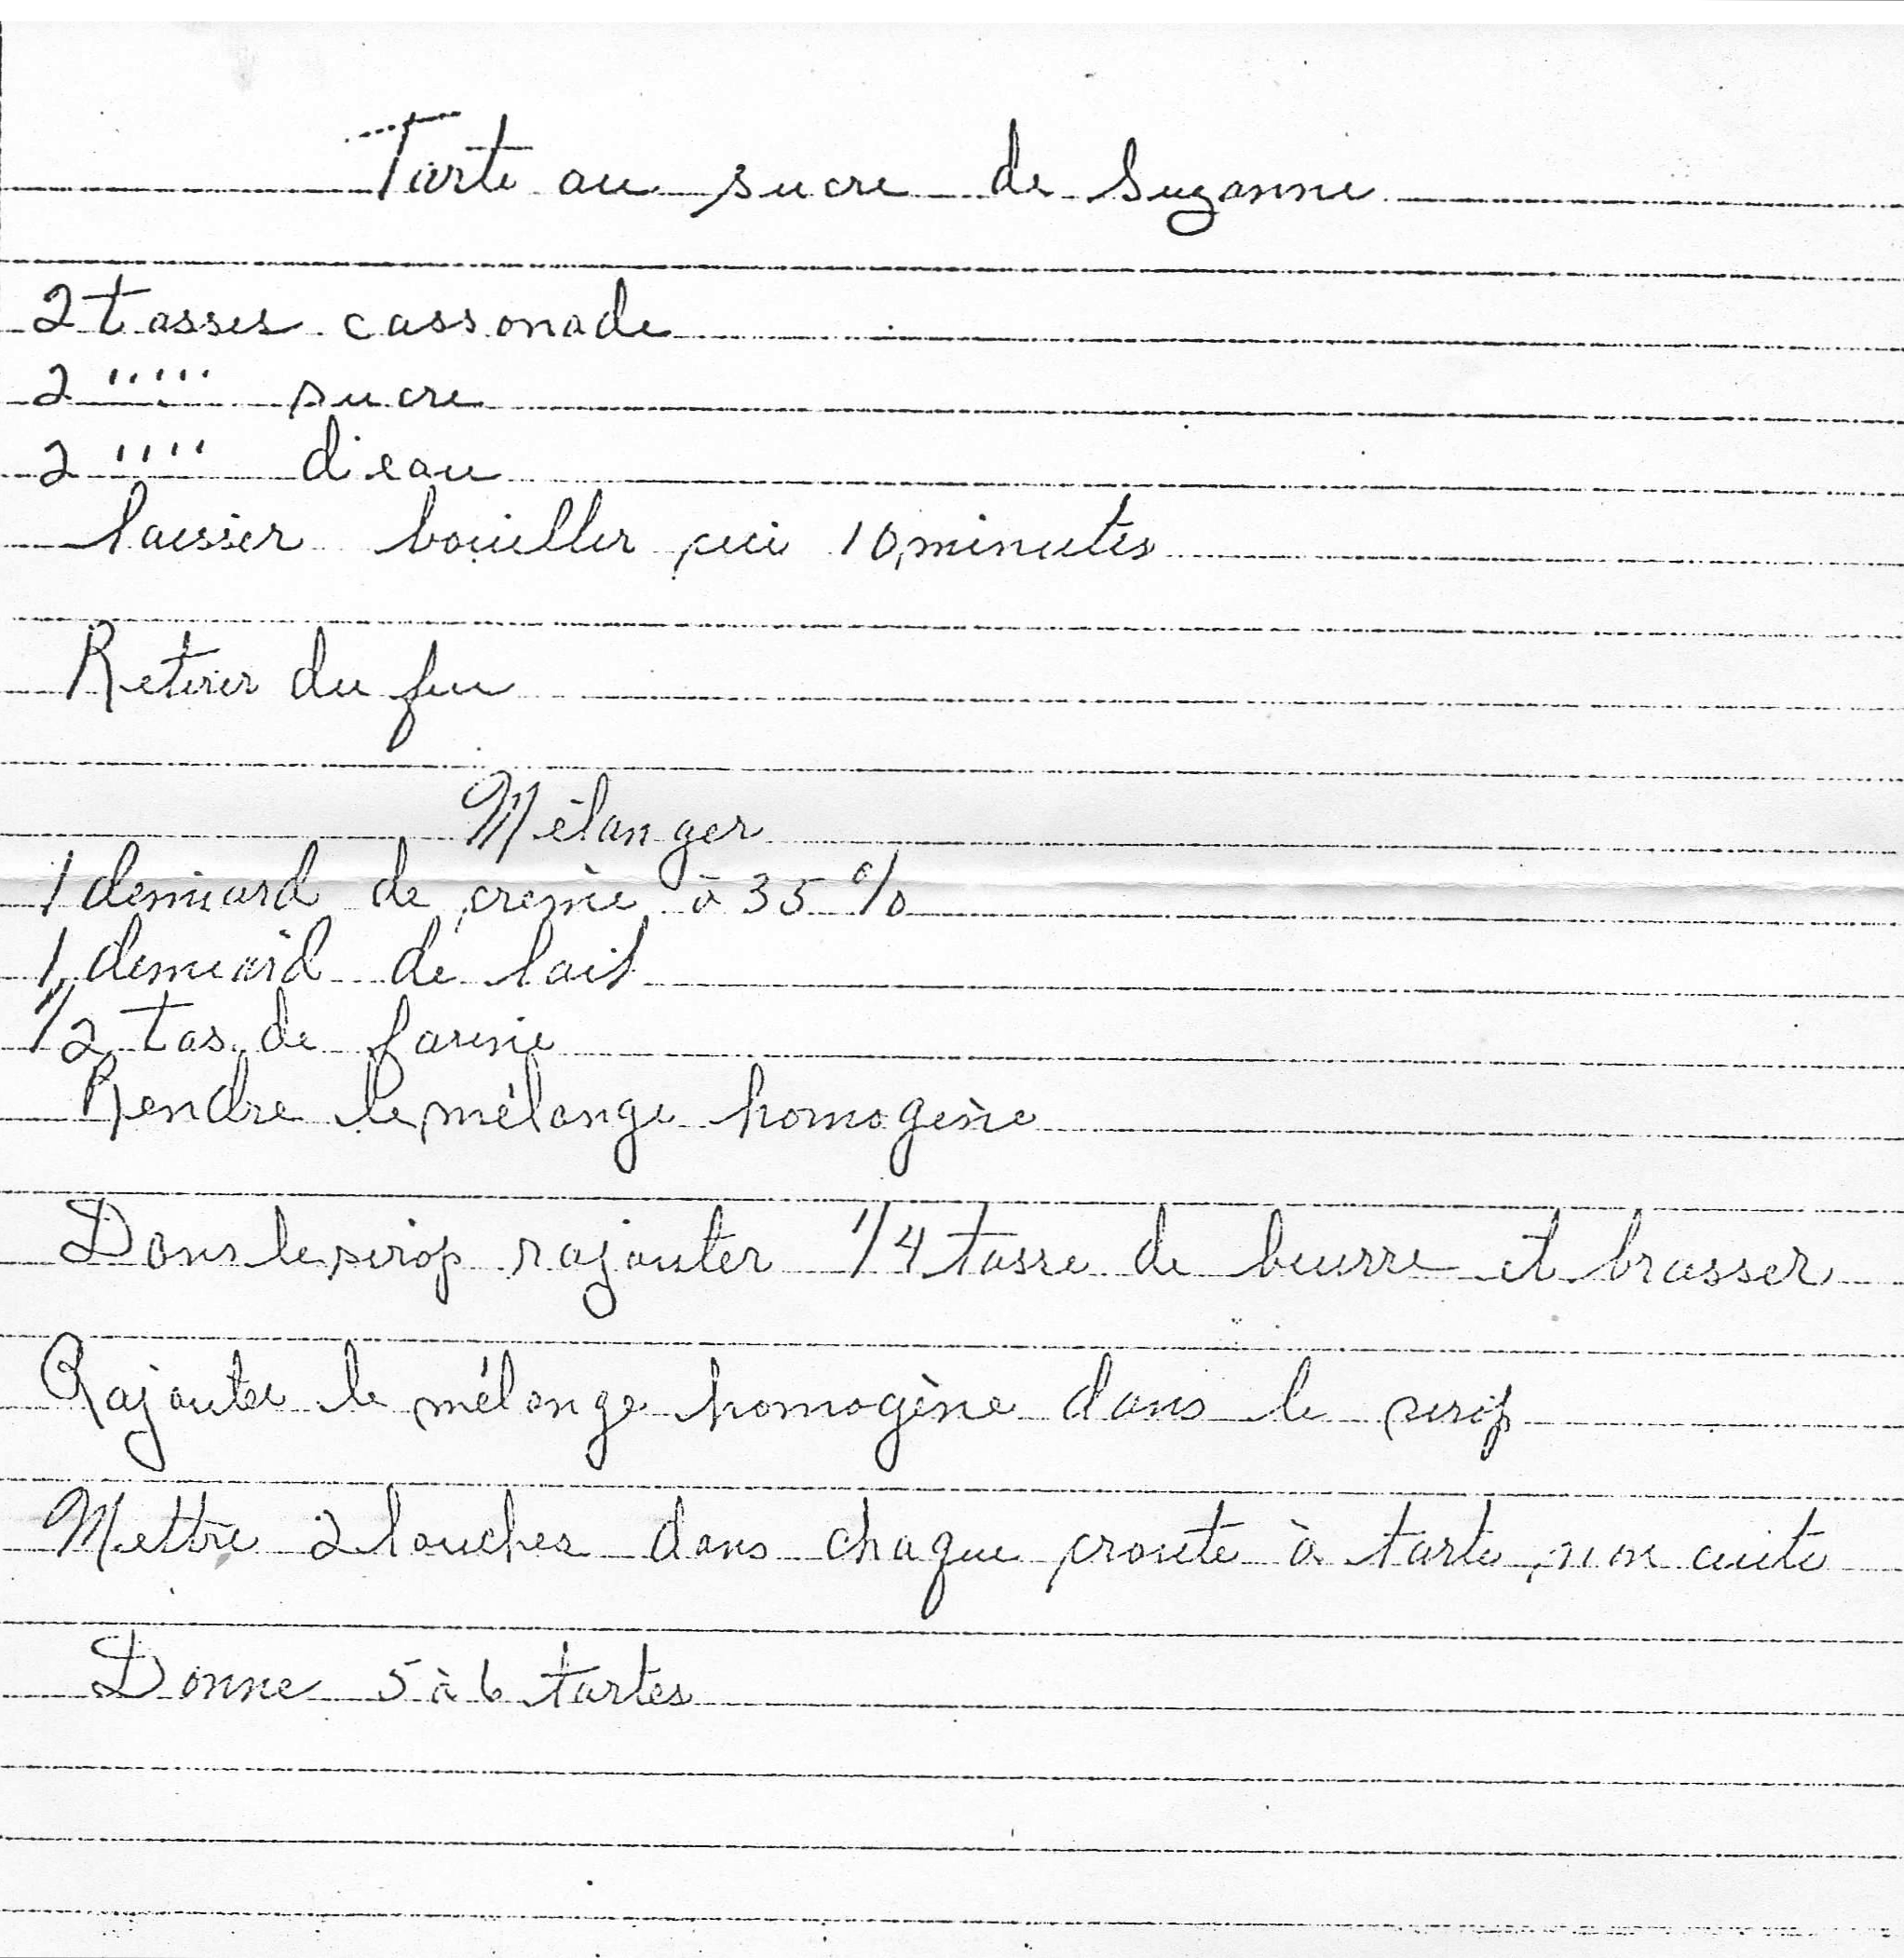 Tarte au sucre de Suzanne
2 tasses cassonade
2 " " " sucre
2 " " d'eau
laisser bouiller 10 minutes
Retirer du feu
Mélanger
1 demiard de crème à 35 %
1 demiard de lait
1/2 tas. de farine
Rendre le mélange homogène
Dans le sirop rajouter 1/4 tasse de beurre et brasser
Rajouter le mélange homogène dans le sirop
Mettre 2 louches dans chaque croute à tarte non cuite
Donne 5 à 6 tartes